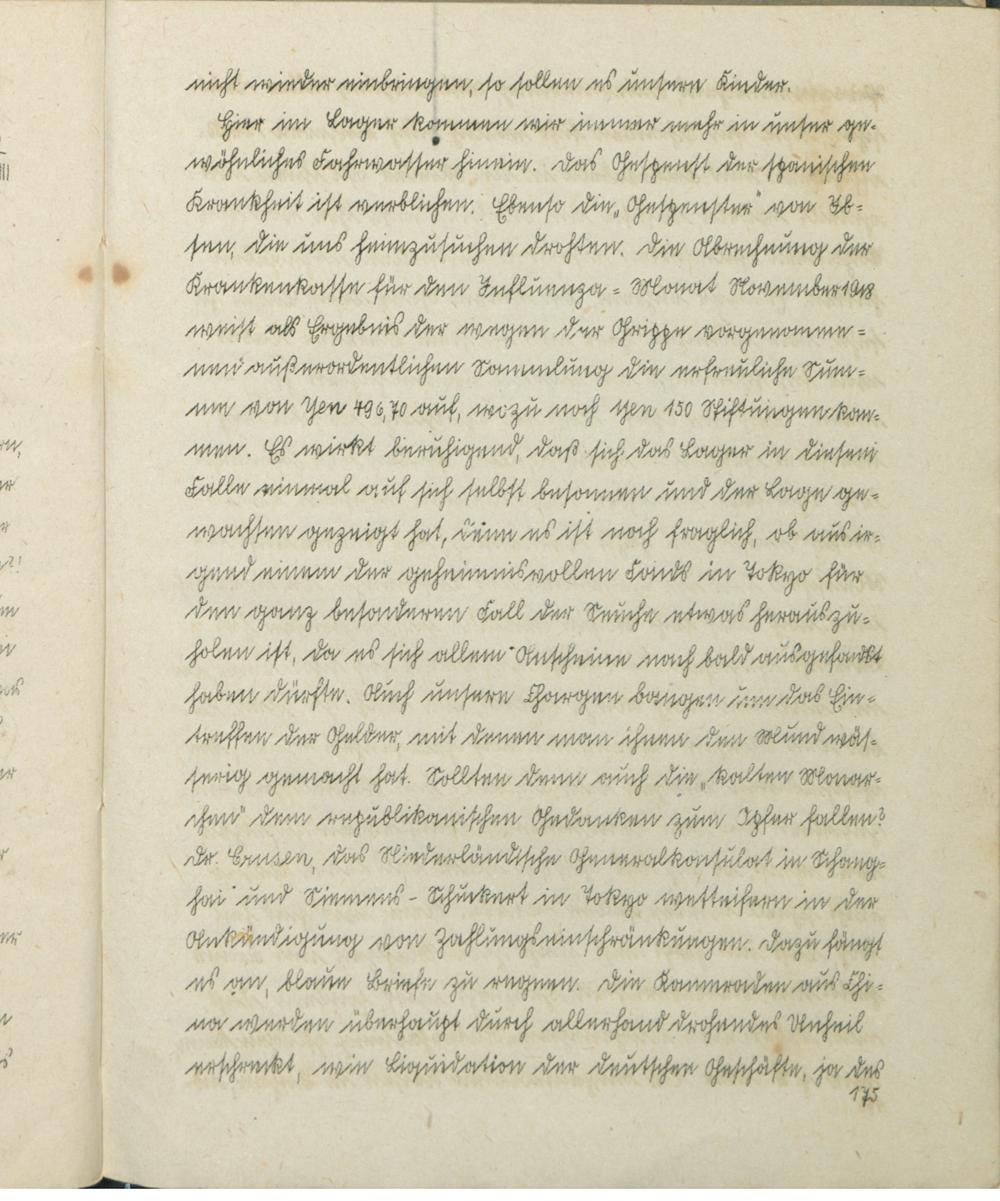 nicht wieder einbringen, so sollen es unsere Kinder.
Hier im Lager kommen wir immer mehr in unser ge-
wöhnliches Fahrwasser hinein. Das Gespenst der spanischen
Krankheit ist verblichen. Ebenso die „Gespenster" von Ib-
sen, die uns heimzusuchen drohten. Die Abrechnung der
Krankenkasse für den Influenza-Monat November 1918
weist als Ergebnis der wegen der Grippe vorgenomme-
nen außerordentlichen Sammlung die erfreuliche Sum-
me von Yen 496,70 auf, wozu noch Yen 150 Stiftungen kom-
men. Es wirkt beruhigend, daß sich das Lager in diesem
Falle einmal auf sich selbst besonnen und der Lage ge-
wachsen gezeigt hat, denn es ist noch fraglich, ob aus ir-
gend einem der geheimnisvollen Fonds in Tokyo für
den ganz besonderen Fall der Seuche etwas herauszu-
holen ist, da es sich allem Anscheine nach bald ausgesandt
haben dürfte. Auch unsere Chargen bangen um das Ein-
treffen der Gelder, mit denen man ihnen den Mund wäs-
serig gemacht hat. Sollten denn auch die „kalten Monar-
chen" dem republikanischen Gedanken zum Opfer fallen?
Dr. das Niederländische Generalkonsulat in Schang-
hai und Siemens-Schuckert in Tokyo wetteifern in der
Ankündigung von Zahlungseinschränkungen. Dazu fängt
es an, blaue Briefe zu regnen. Die Kameraden aus Chi-
na werden überhaupt durch allerhand drohendes Unheil
erschreckt, wie Liquidation der deutschen Geschäfte, ja des
175